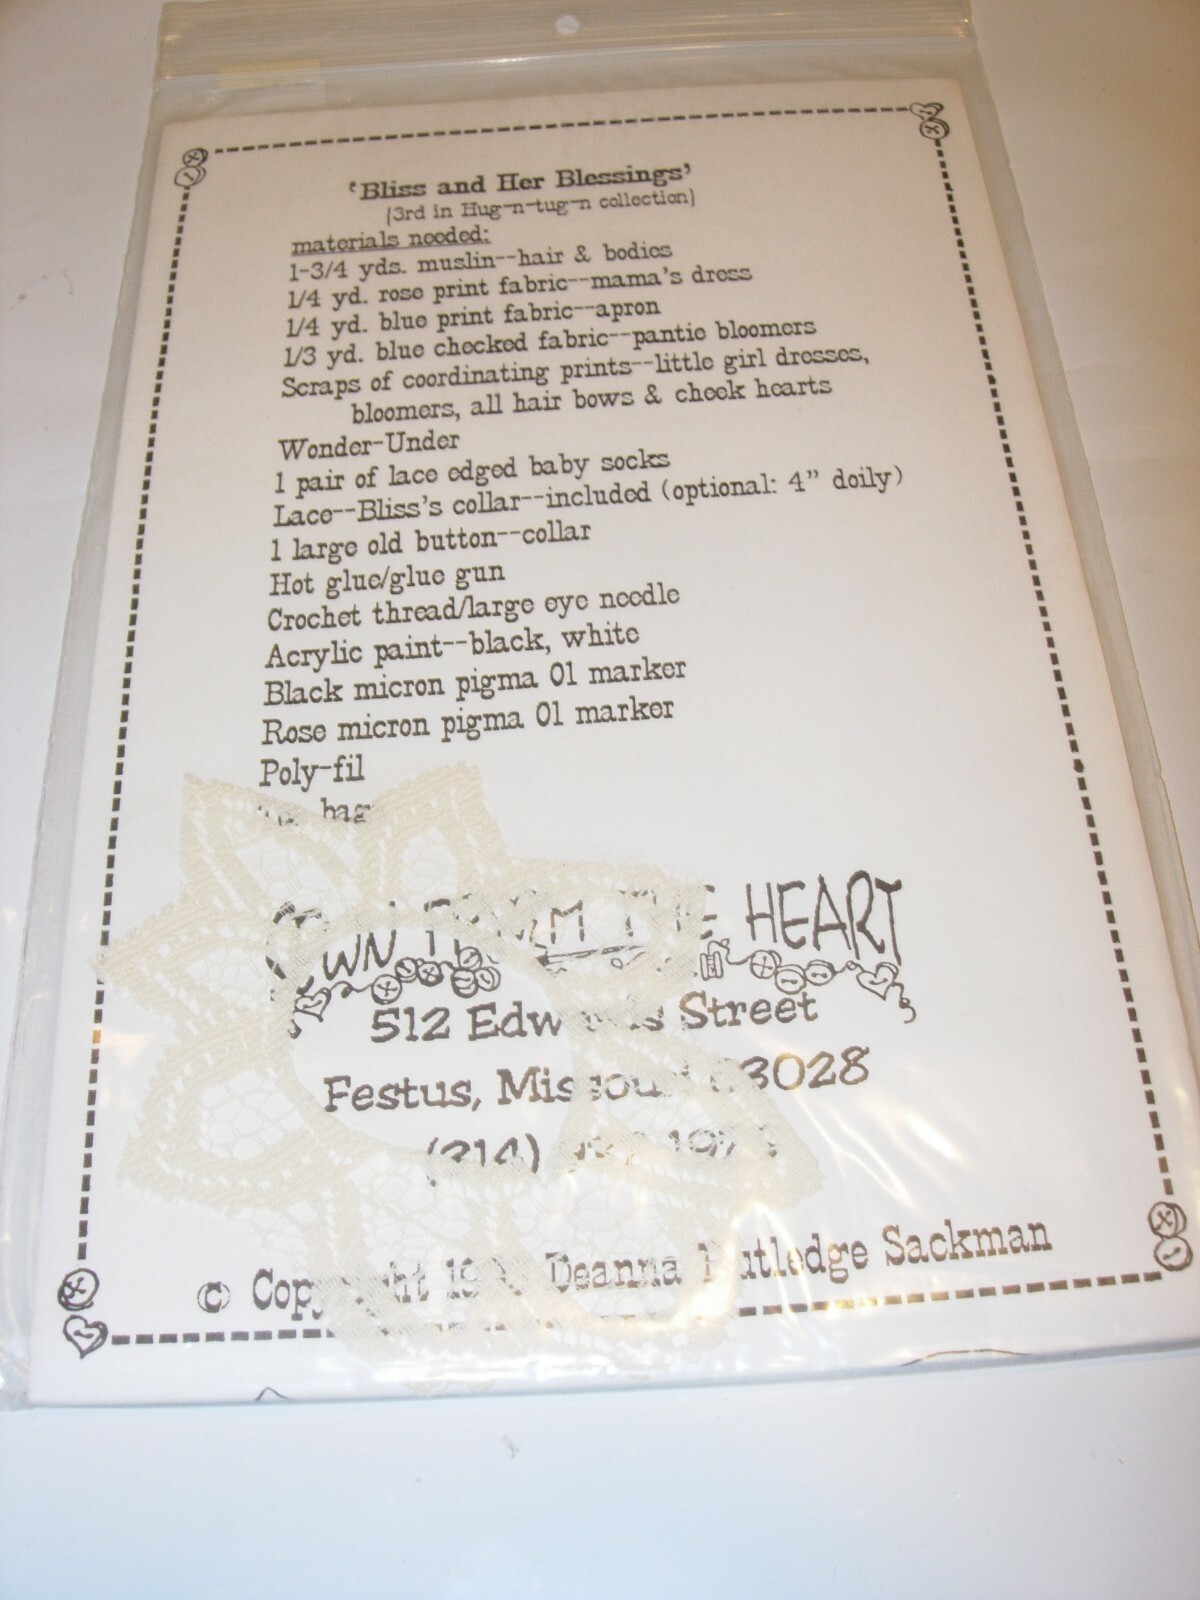 'Bliss and Her Blessings'
[3rd in Hug-n-tug-n collection]
materials needed:
1-3/4 yds. muslin--hair & bodies
1/4 yd. rose print fabric--mama's dress
1/4 yd. blue print fabric--apron
1/3 yd. blue checked fabric--pantie bloomers
Scraps of coordinating prints--little girl dresses,
bloomers, all hair bows & cheek hearts
Wonder-Under
1 pair of lace edged baby socks
Lace--Bliss's collar--included (optional: 4" doily)
1 large old button--collar
Hot glue/glue gun
Crochet thread/large eye needle
Acrylic paint--black, white
Black micron pigma 01 marker
Rose micron pigma 01 marker
Poly-fil
bag
FROM THE HEART
512 Edwards Street
Festus, Missouri 63028
(314)
© Copyright Deanna Rutledge Sackman